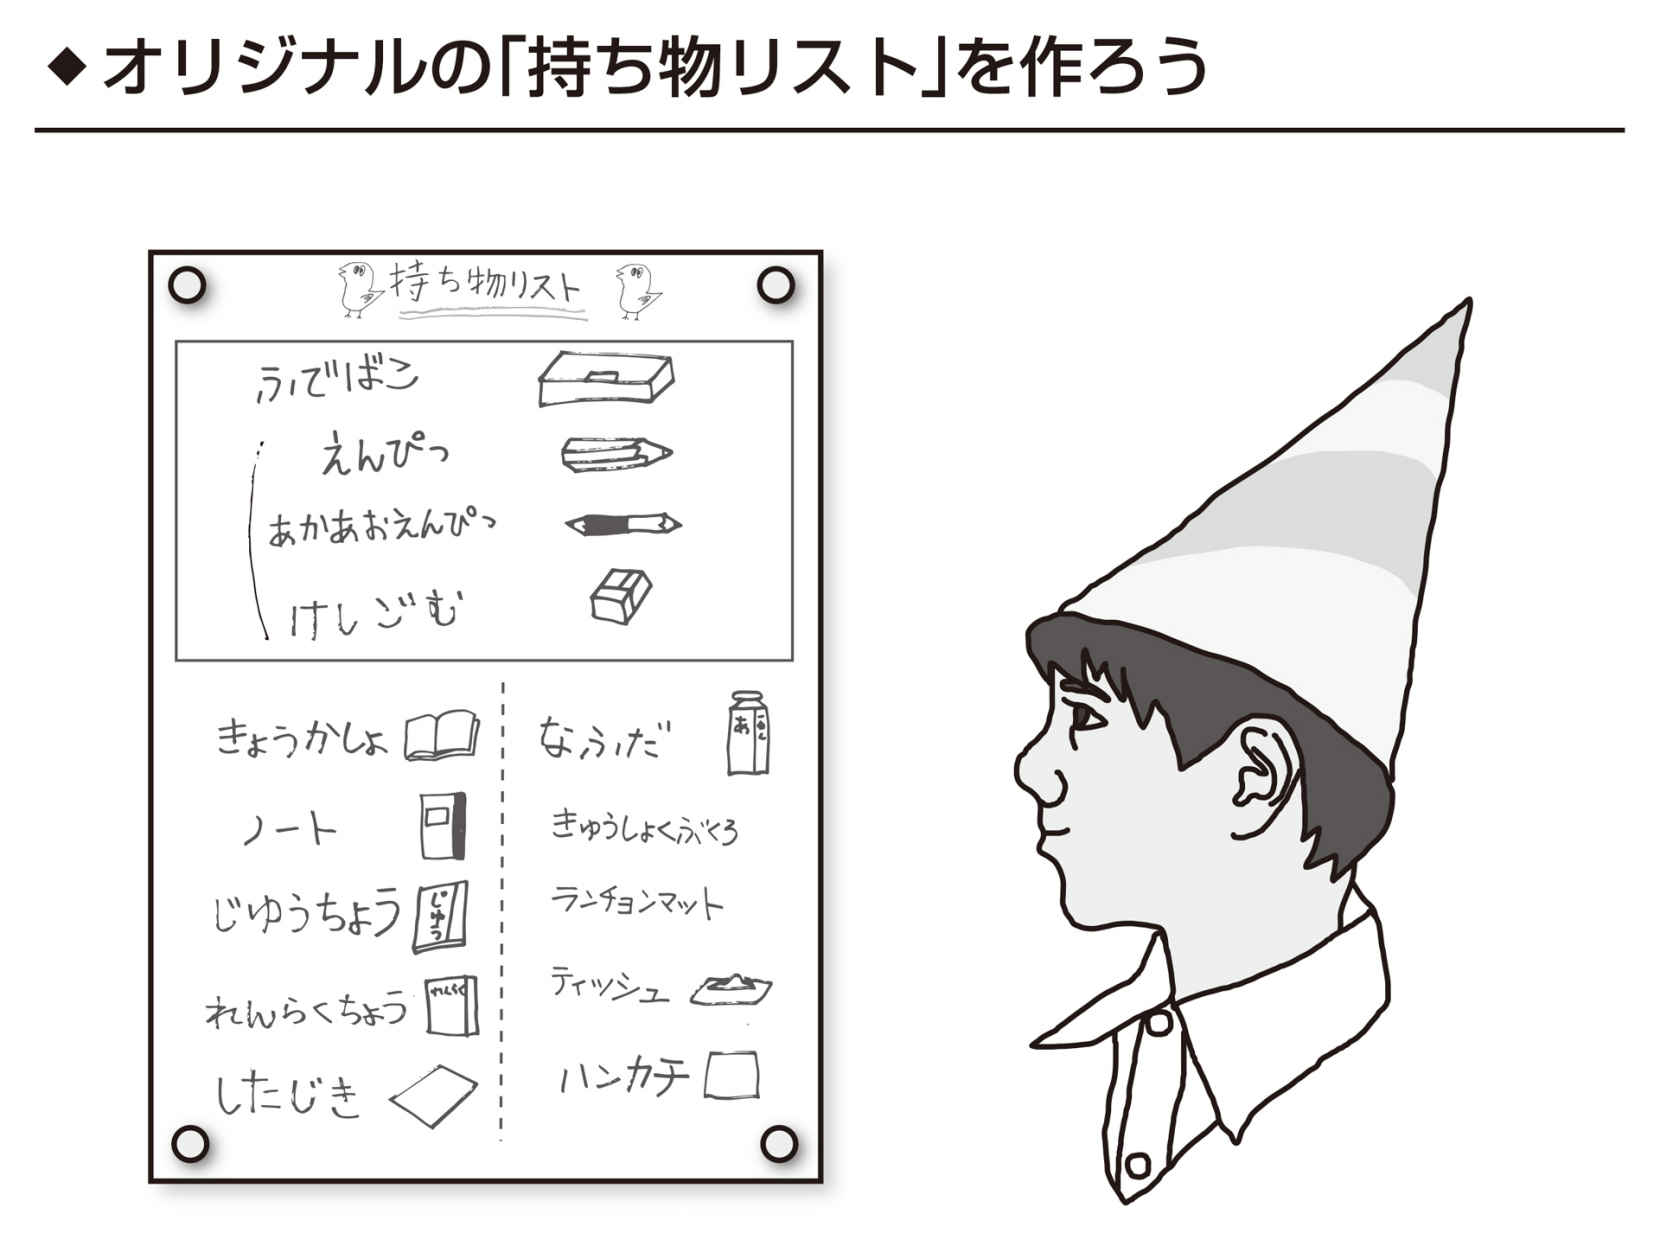 ◆オリジナルの「持ち物リスト」を作ろう
持ち物リスト
ふでばこ
えんぴつ
あかあおえんぴつ
けしごむ
きょうかしょ
ノート
じゆうちょう
じゆう
れんらくちょう
れんらく
したじき
なふだ
きゅうしょくぶくろ
ランチョンマット
ティッシュ
ハンカチ